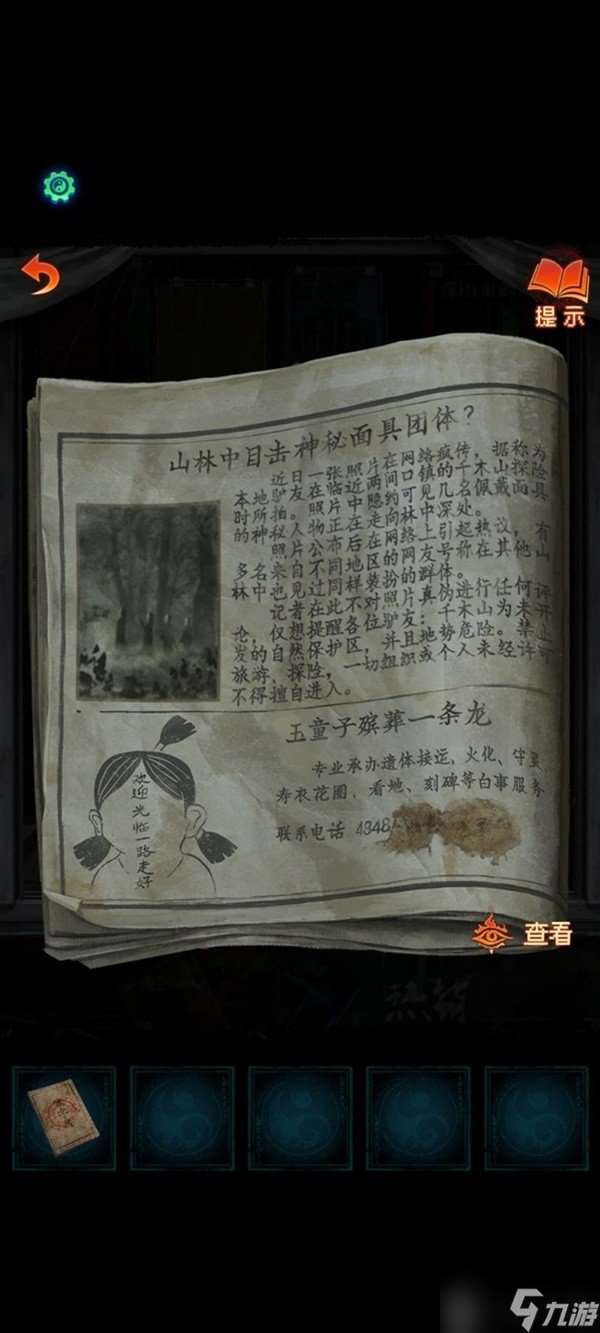 提示
山林中目击神秘面具团体？
近日一张照片在网络疯传，据称为
本地驴友在临近两间口镇的千木山探险
时所拍。照片中隐约可见几名佩戴面具
的神秘人物正走向林中深处。
照片公布后在网络上引起热议，有
多名来自不同地区的网友号称在其他山
林中也见过同样装扮的群体。
记者在此不对照片真伪进行任何评
论，仅想提醒各位驴友：千木山为未开
发的自然保护区，并且地势危险。禁止
旅游、探险，一切组织或个人未经许可
不得擅自进入。
玉童子殡葬一条龙
专业承办遗体接运，火化、守灵、
寿衣花圈，看地、刻碑等白事服务
联系电话 4348
欢迎光临一路走好
查看
九游